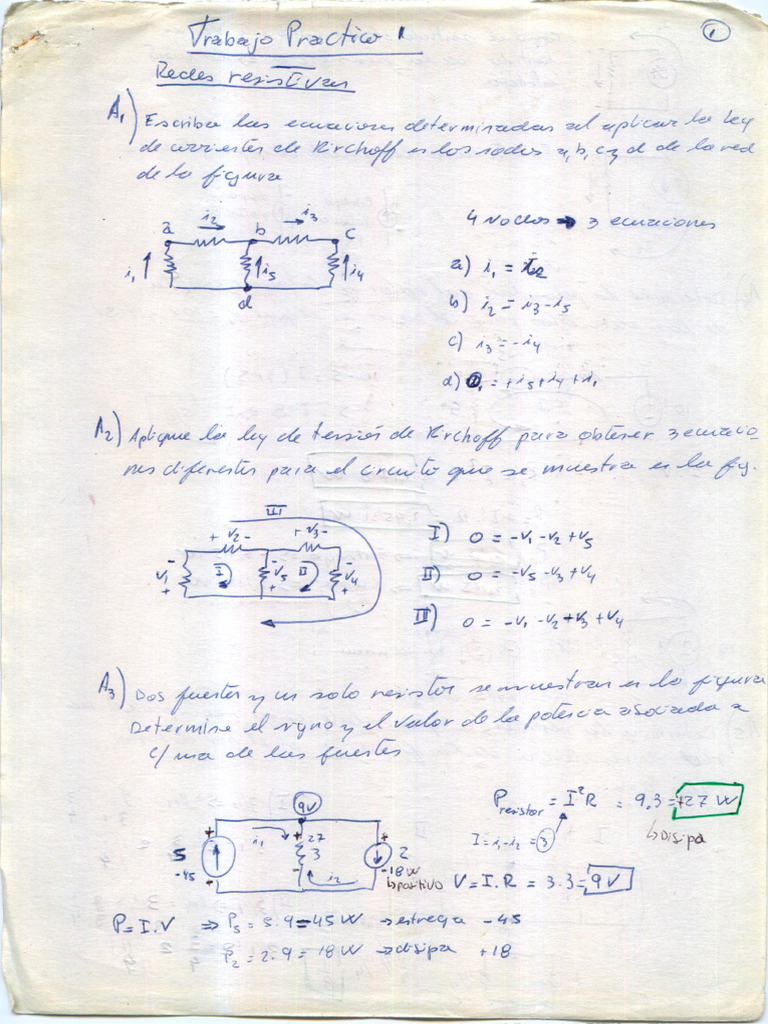 1
Trabajo Practico 1
Redes resistivas
A1) Escriba las ecuaciones determinadas al aplicar la ley
de corrientes de Kirchoff en los nodos a, b, c y d de la red
de la figura
4 nodos → 3 ecuaciones
a i2 b i3 c
i1 i5 i4
d
a) i1 = i2
b) i2 = i3 - i5
c) i3 = -i4
d) = +i5 + i4 + i1
A2) Aplique la ley de tensión de Kirchoff para obtener 3 ecuacio-
nes diferentes para el circuito que se muestra en la fig.
III
+ v2 - + v3 -
- v1 + I - v5 + II - v4 +
I) 0 = -v1 - v2 + v5
II) 0 = -v5 - v3 + v4
III) 0 = -v1 - v2 + v3 + v4
A3) Dos fuentes y un solo resistor se muestran en la figura
Determine el signo y el valor de la potencia asociada a
c/una de las fuentes
9V
5 -45 + i1 + 27 3 - i2 + 2 -
-18W
↳ positivo
P resistor = I²R = 9.3 = +27 W
↳ Disipa
I = i1 - i2 = 3
V = I.R = 3.3 = 9V
P = I.V ⇒ P5 = 5.9 = 45 W → entrega -45
P2 = 2.9 = 18 W → disipa +18